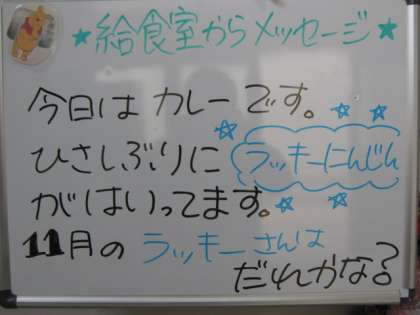 ★給食室からメッセージ★
今日はカレーです。☆☆
ひさしぶりに☆ラッキーにんじん
がはいってます。☆☆
11月のラッキーさんは
だれかな?